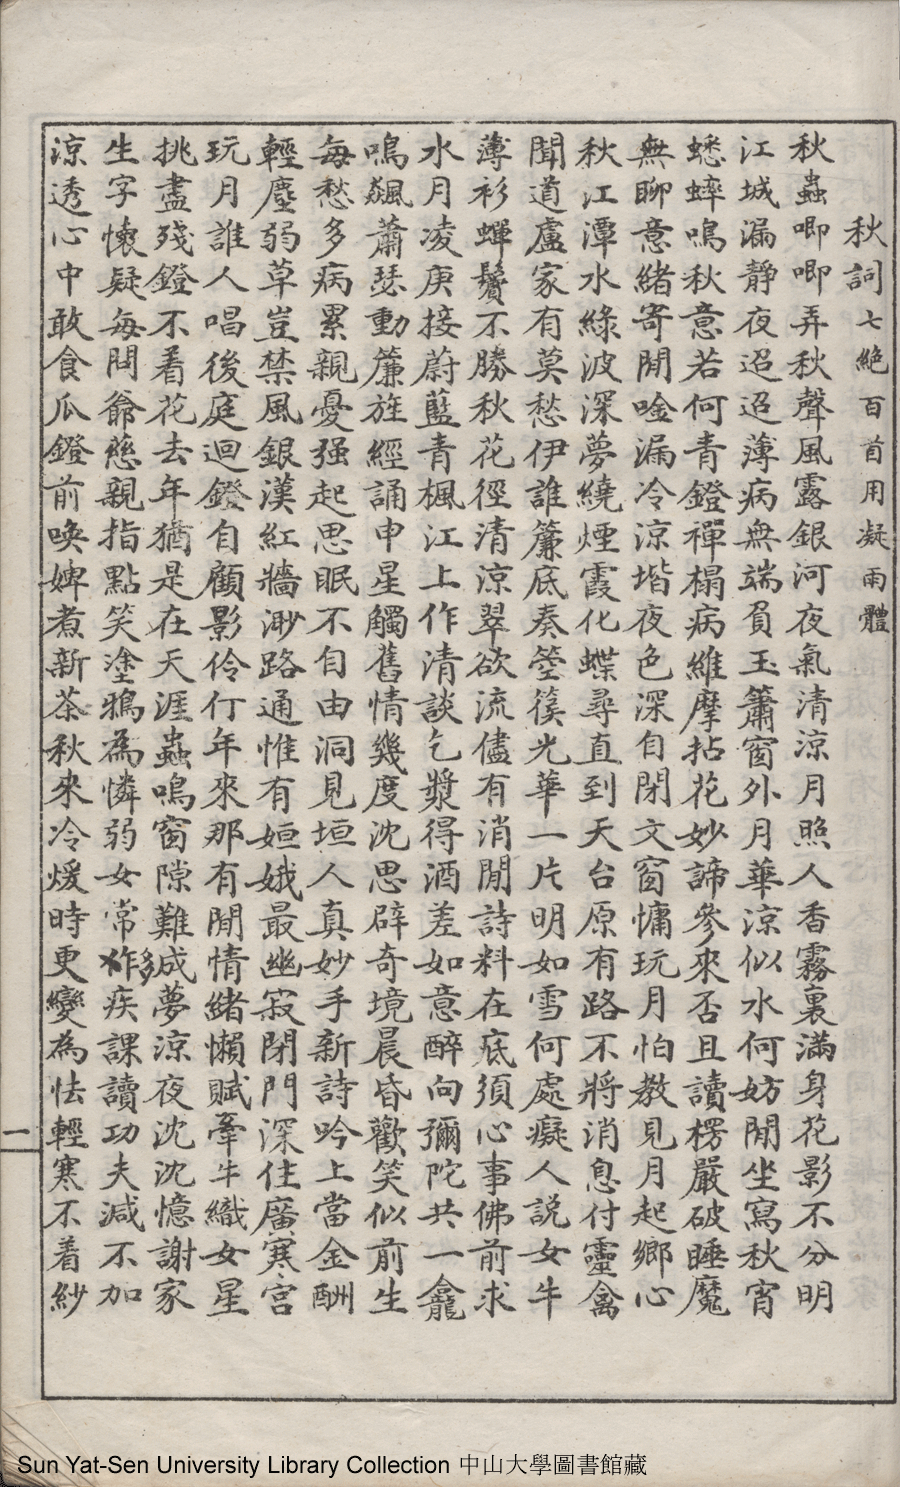 秋詞七絕百首用凝雨體
秋蟲唧唧弄秋聲風露銀河夜氣清涼月照人香霧裏滿身花影不分明
江城漏靜夜迢迢薄病無端負玉簫窗外月華涼似水何妨閒坐寫秋宵
蟋蟀鳴秋意若何青鐙禪榻病維摩拈花妙諦參來否且讀楞嚴破睡魔
無聊意緒寄閒唫漏冷涼堦夜色深自閉文窗慵玩月怕教見月起鄉心
秋江潭水綠波深夢繞煙霞化蝶尋直到天台原有路不將消息付靈禽
聞道盧家有莫愁伊誰簾底奏箜篌光華一片明如雪何處癡人説女牛
薄衫蟬鬢不勝秋花徑清涼翠欲流儘有消閒詩料在底須心事佛前求
水月凌庚接蔚藍青楓江上作清談乞漿得酒差如意醉向彌陀共一龕
鳴飆蕭瑟動簾旌經誦申星觸舊情幾度沈思辟奇境晨昏歡笑似前生
每愁多病累親憂强起思眠不自由洞見垣人真妙手新詩吟上當金酬
輕塵弱草豈禁風銀漢紅牆渺路通惟有姮娥最幽寂閉門深住廣寒宮
玩月誰人唱後庭迴鐙自顧影伶仃年來那有閒情緒懶賦牽牛織女星
挑盡殘鐙不看花去年猶是在天涯蟲鳴窗隙難成夢涼夜沈沈憶謝家
生字懷疑每問爺慈親指點笑塗鴉為憐弱女常多疾課讀功夫減不加
涼透心中敢食瓜鐙前喚婢煮新茶秋來冷煖時更變為怯輕寒不着紗
一
Sun Yat-Sen University Library Collection 中山大學圖書館藏